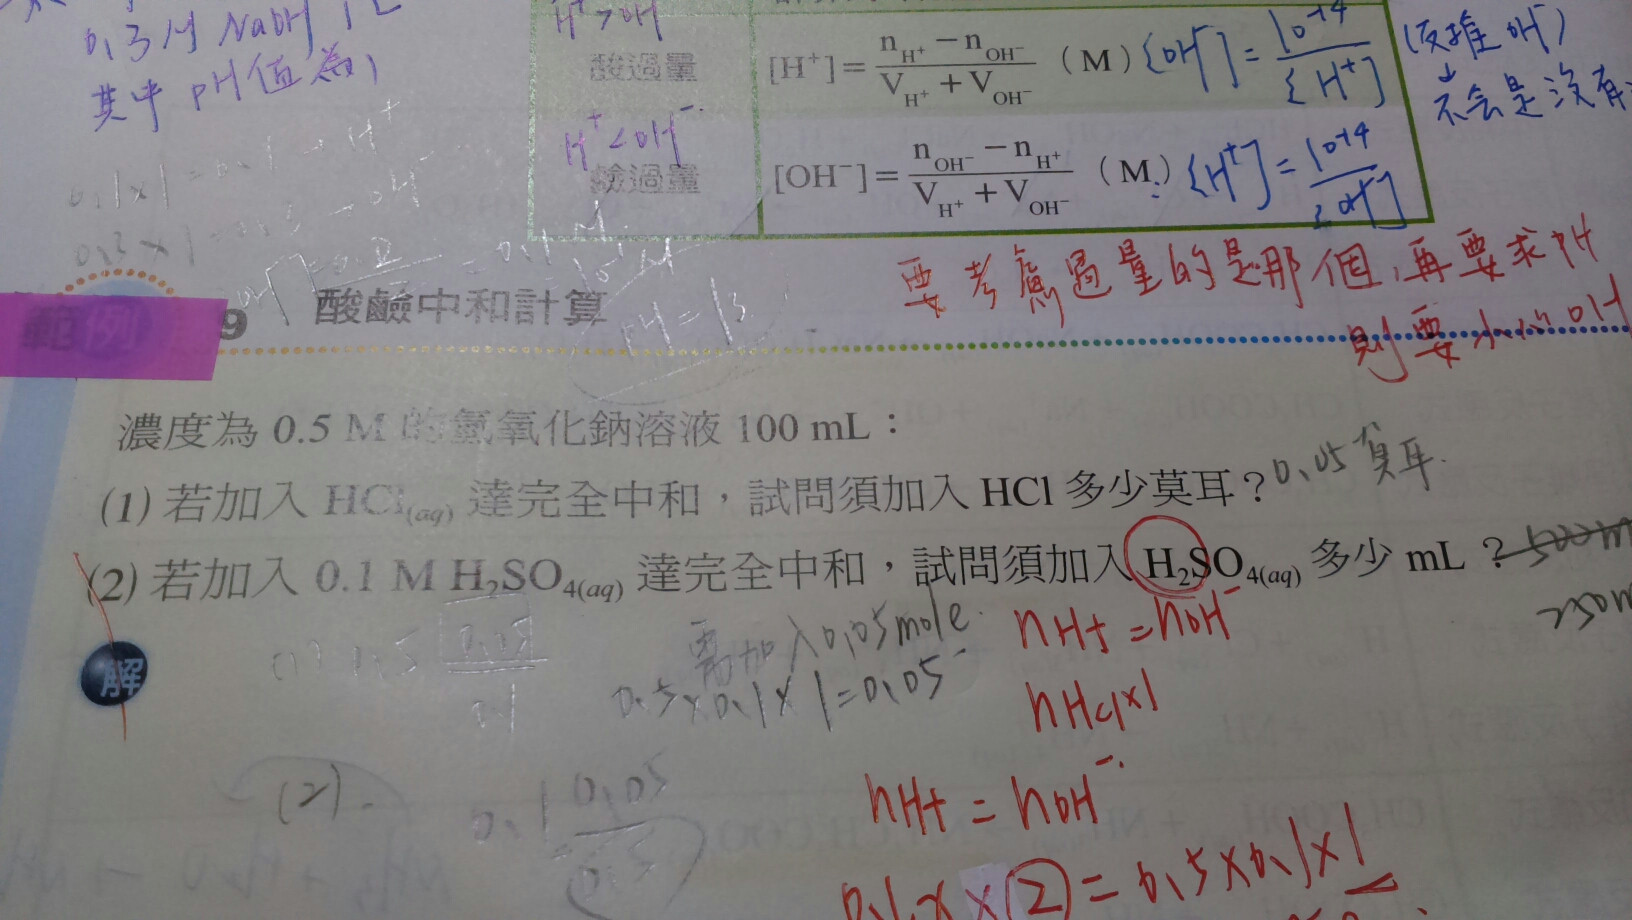 0.3M NaOH 1L
其中 pH值為,
H⁺>OH
酸過量
[H⁺]= (n H⁺ − n OH⁻) / (V H⁺ + V OH⁻) (M) {OH⁻]= 10⁻¹⁴ / {H⁺]
(反推OH⁻)
↓
不會是沒有
H⁺<OH⁻
鹼過量
[OH⁻]= (n OH⁻ − n H⁺) / (V H⁺ + V OH⁻) (M) {H⁺]= 10⁻¹⁴ / [OH⁻]
0.1x1=0.1→H⁺
pH=13
要考慮過量的是那個,再要求pH
則要小心OH
範例 9 酸鹼中和計算
濃度為 0.5 M 的氫氧化鈉溶液 100 mL:
(1) 若加入 HCl(aq) 達完全中和,試問須加入 HCl 多少莫耳?0.05莫耳.
(2) 若加入 0.1 M H₂SO₄(aq) 達完全中和,試問須加入 H₂SO₄(aq) 多少 mL ?500m
250m
解
需加入0.05mole.
0.5x0.1x1=0.05
nH+=nOH⁻
nHClx1
(2).
0.1 0.05
nH+=nOH⁻
0.1 x X x②=0.5x0.1x1